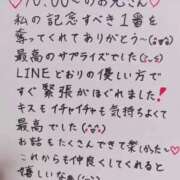 ♡10:00〜のお兄さん♡
私の記念すべき1番を
奪ってくれてありがとう〜
最高のサプライズでした
LINEどおりの優しい方で
すぐ緊張がほぐれました!
キスもイチャイチャも気持ちよくて
最高でした
お話もたくさんできて楽しかったー
これからも仲良くしてくれると
嬉しいなぁ